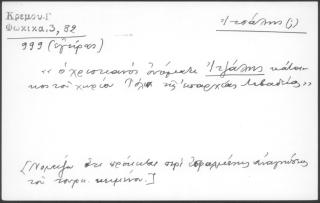 Κρεμου-Γ
Φωκικα, 3, 92
Ἰτσάλης (;)
999 (ἔγγρ.)
« ὁ χριστιανὸς ὀνόματι Ἰτζάλης κάτοι-
κος τοῦ χωρίου τῆς ἐπαρχίας Λιβαδιᾶς »
[Νομίζω ὅτι πρόκειται περὶ ἐσφαλμένης ἀναγνώσεως
τοῦ τουρκ. κειμένου.]